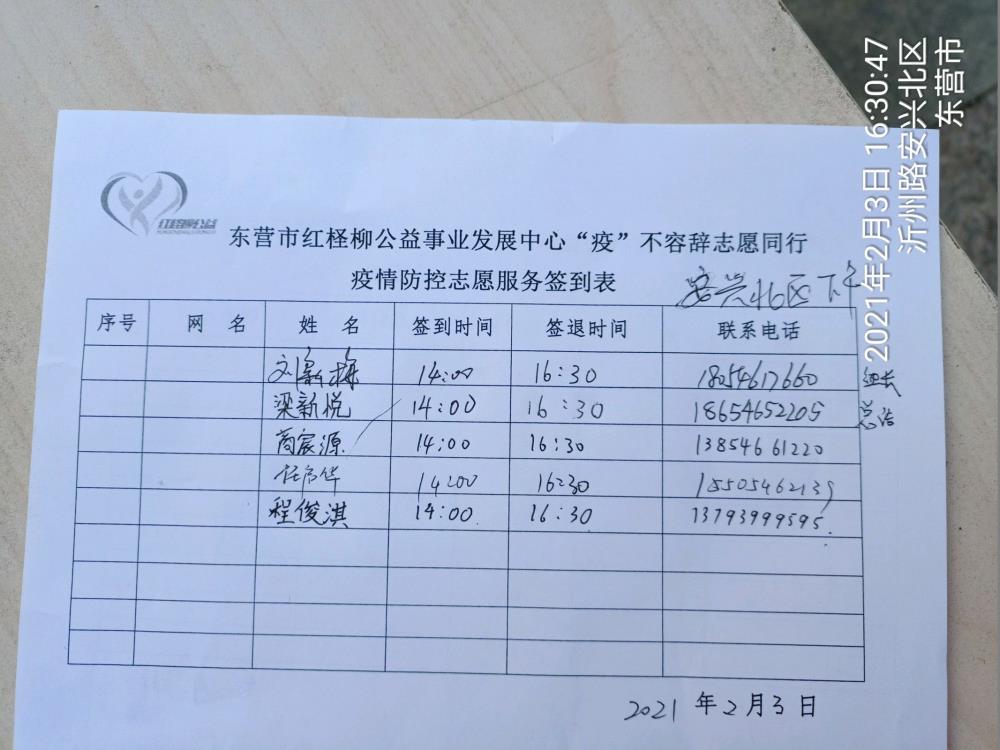 2021年2月3日 16:30:47
沂州路安兴北区
东营市
红柽柳公益
东营市红柽柳公益事业发展中心“疫”不容辞志愿同行
疫情防控志愿服务签到表
安兴北区下午
序号 网 名 姓 名 签到时间 签退时间 联系电话
刘新梅 14:00 16:30 18054617660 组长
梁新悦 14:00 16:30 18654652205 总结
苘宸源 14:00 16:30 13854661220
14:00 16:30 18505462139
程俊淇 14:00 16:30 13793999595
2021 年 2 月 3 日